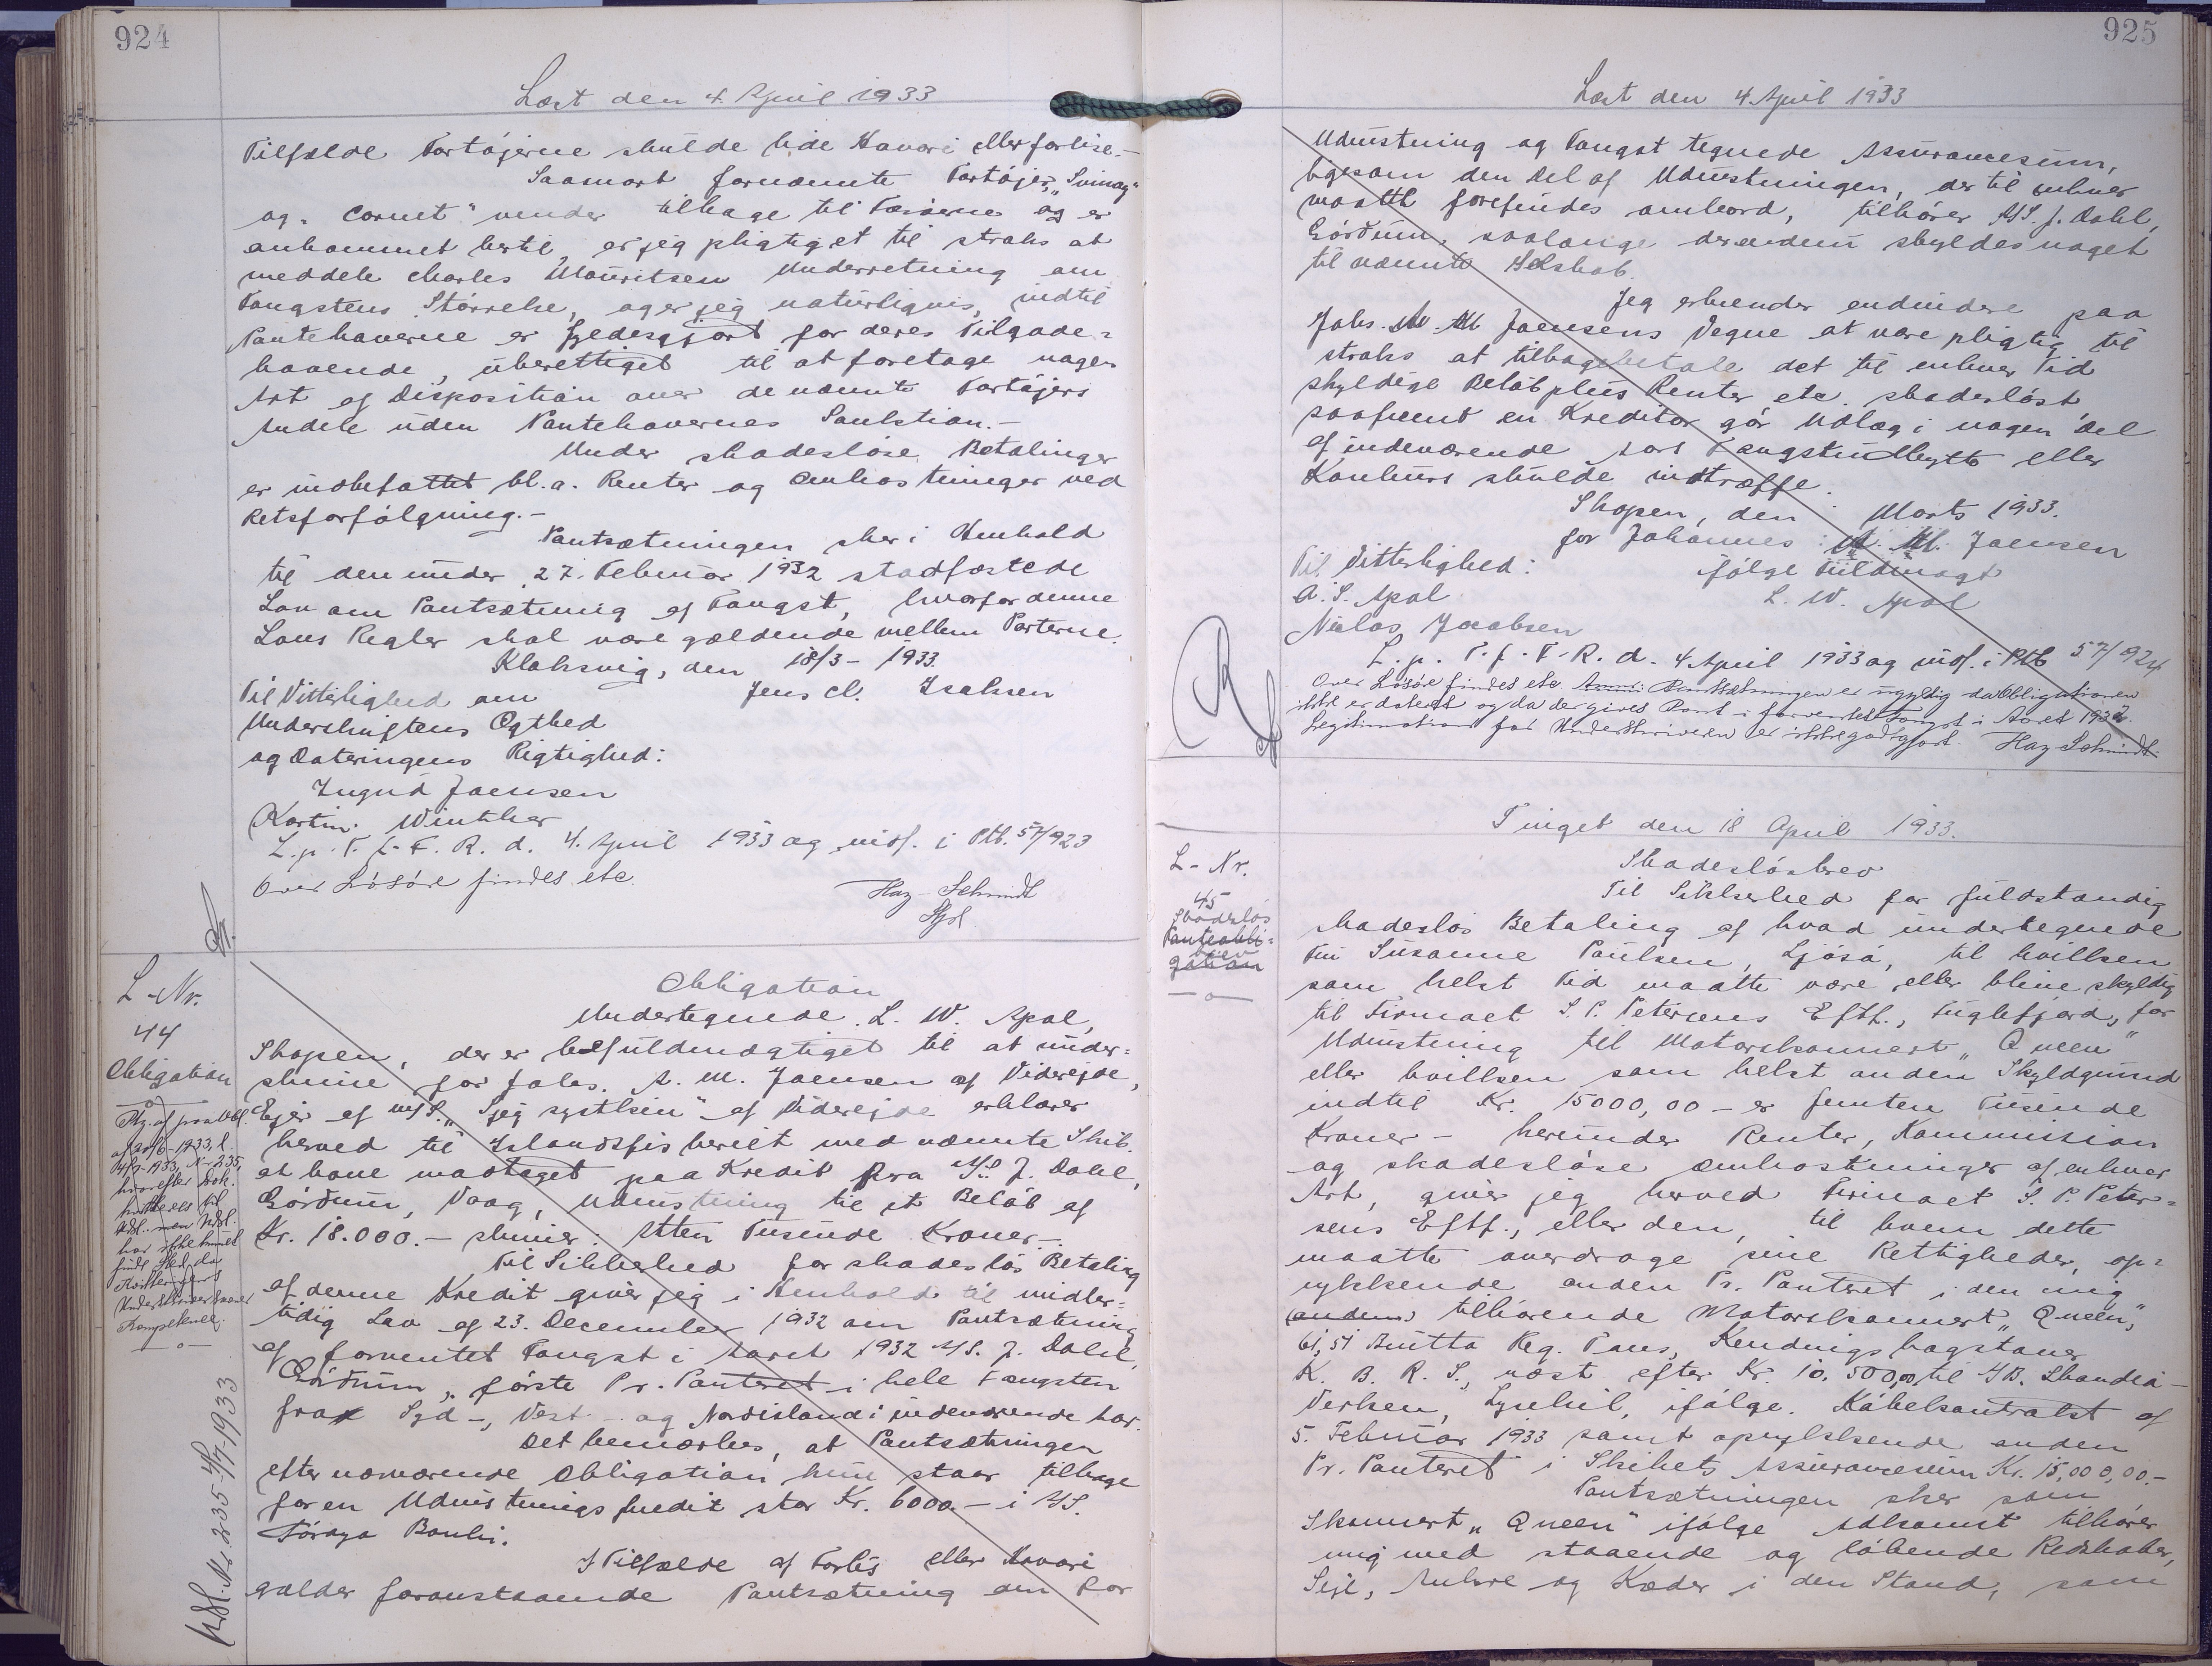 924
Læst den 4. April 1933
Tilfælde Fartøjerne skulde lide Havari eller forlise.-
Saasnart fornævnte Fartøjer, "Svinoy"
og "Cornet" vender tilbage til Færøerne og er
ankommet hertil, er jeg pligtiget til straks at
meddele Charles Mouritsen Underretning om
Fangstens Størrelse, og er jeg naturligvis, indtil
Panthaverne er fyldesgjort for deres Tilgode-
havende, uberettiget til at foretage nogen
Art af Disposition over de nævnte Fartøjers
Andele uden Panthavernes Sanktion.-
Under skadesløse Betalinger
er indbefattet bl.a. Renter og Omkostninger ved
Retsforfølgning.-
Pantsætningen sker i Henhold
til den under 27. Februar 1932 stadfæstede
Lov om Pantsætning af Fangst, hvorfor denne
Lovs Regler skal være gældende mellem Parterne.
Klaksvig, den 18/3 - 1933.
Til Vitterlighed om Jens Cl. Isaksen
Underskriftens Ægthed
og Dateringens Rigtighed:
Ingrid Joensen
Kartin Winther
L. p. T. f. F. R. d. 4. April 1933 og indf. i Ptb. 57/923
Over Løsøre findes etc.
Hay-Schmidt
L-Nr.
44
Obligation
Obligation
Undertegnede L. W. Apol,
Skopen, der er befuldmægtiget til at under-
skrive for Johs. A. M. Joensen af Viderejde,
Ejer af m/S. "Sjeystkin" af Viderejde erklærer
herved til Islandsfiskeriet med nævnte Skib
at have modtaget paa Kredit fra A/S J. Dahl,
Gørðum, Vaag, Udrustning til et Beløb af
Kr. 18.000.- skriver: Atten Tusinde Kroner.-
Til Sikkerhed for skadesløs Betaling
af denne Kredit giver jeg i Henhold til midler-
tidig Lov af 23. December 1932 om Pantsætning
af forventet Fangst i Aaret 1932 A/S. J. Dahl,
Gørðum, første Pr. Panteret i hele Fangsten
fra Syd-, Vest- og Nordisland i indeværende Aar.
Det bemærkes, at Pantsætningen
efter nærværende Obligation kun staar tilbage
for en Udrustningskredit stor Kr. 6000.- i A/S.
Føroya Banki.
I Tilfælde af Forlis eller Havari
gælder foranstaaende Pantsætning den for
Udsl. Nr. 235 4/7-1933
925
Læst den 4 April 1933
Udrustning og Fangst tegnede Assurancesum,
ligesom den Del af Udrustningen, der til enhver
maatte forefindes ombord, tilhører A/S. J. Dahl,
Gørðum, saalænge der endnu skyldes noget
til nævnte Selskab.
Jeg erkender endvidere paa
Johs. A. M. Joensens Vegne at være pligtig til
straks at tilbagebetale det til enhver Tid
skyldige Beløb plus Renter etc. skadesløst
saafremt en Kreditor gør Udlæg i nogen Del
af indeværende Aars Fangstudbytte eller
Konkurs skulde indtræffe.
Skopen, den Marts 1933.
for Johannes A. M. Joensen
Til Vitterlighed: ifølge Fuldmagt
A. S. Apol L. W. Apol
Niclas Jacobsen
L. p. T. f. F. R. d. 4 April 1933 og indf. i Ptb 57/924
Over Løsøre findes etc. Pantsætningen er ugyldig da Obligationen
ikke er dateret og da der gives Pant i forventet Fangst i Aaret 1932.
Legitimation for Underskriveren er ikke godtgjort. Hay-Schmidt
Tinget den 18 April 1933.
L-Nr.
45
Skadesløs
Panteobli-
brev
gation
Skadesløsbrev
Til Sikkerhed for fuldstændig
skadesløs Betaling af hvad undertegnede
Fru Susanne Poulsen, Ljósá, til hvilken
som helst Tid maatte være eller blive skyldig
til Firmaet S. P. Petersens Eftf., Fuglefjord, for
Udrustning til Motorskonnert "Queen"
eller hvilken som helst anden Skyldgrund
indtil Kr. 15000,00 - er femten Tusinde
Kroner - herunder Renter, Kommission
og skadesløse Omkostninger af enhver
Art, giver jeg herved Firmaet S. P. Peter-
sens Eftf., eller den, til hvem dette
maatte overdrage sine Rettigheder, op-
rykkende anden Pr. Panteret i den mig
(anden) tilhørende Motorskonnert "Queen",
61,51 Brutto Reg. Tons, Kendingsbogstaver
K. B. R. S., næst efter Kr. 10.500,00 til A/B. Skandia-
Verken, Lysekil, ifølge Købekontrakt af
5. Februar 1933 samt oprykkende anden
Pr. Panteret i Skibets Assurancesum Kr. 15,000,00.-
Pantsætningen sker som
Skonnert "Queen" ifølge Adkomst tilhører
mig med staaende og løbende Redskaber,
Sejl, Ankre og Kæder i den Stand, som